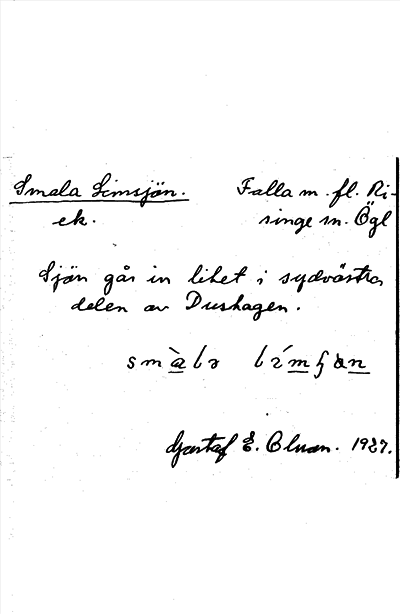 Smala Limsjön. Falla m. fl. Ri-
ek. singe sn. Ögl
Sjön går in litet i sydvästra
delen av Dushagen.
Gustaf E. Olsson. 1927.